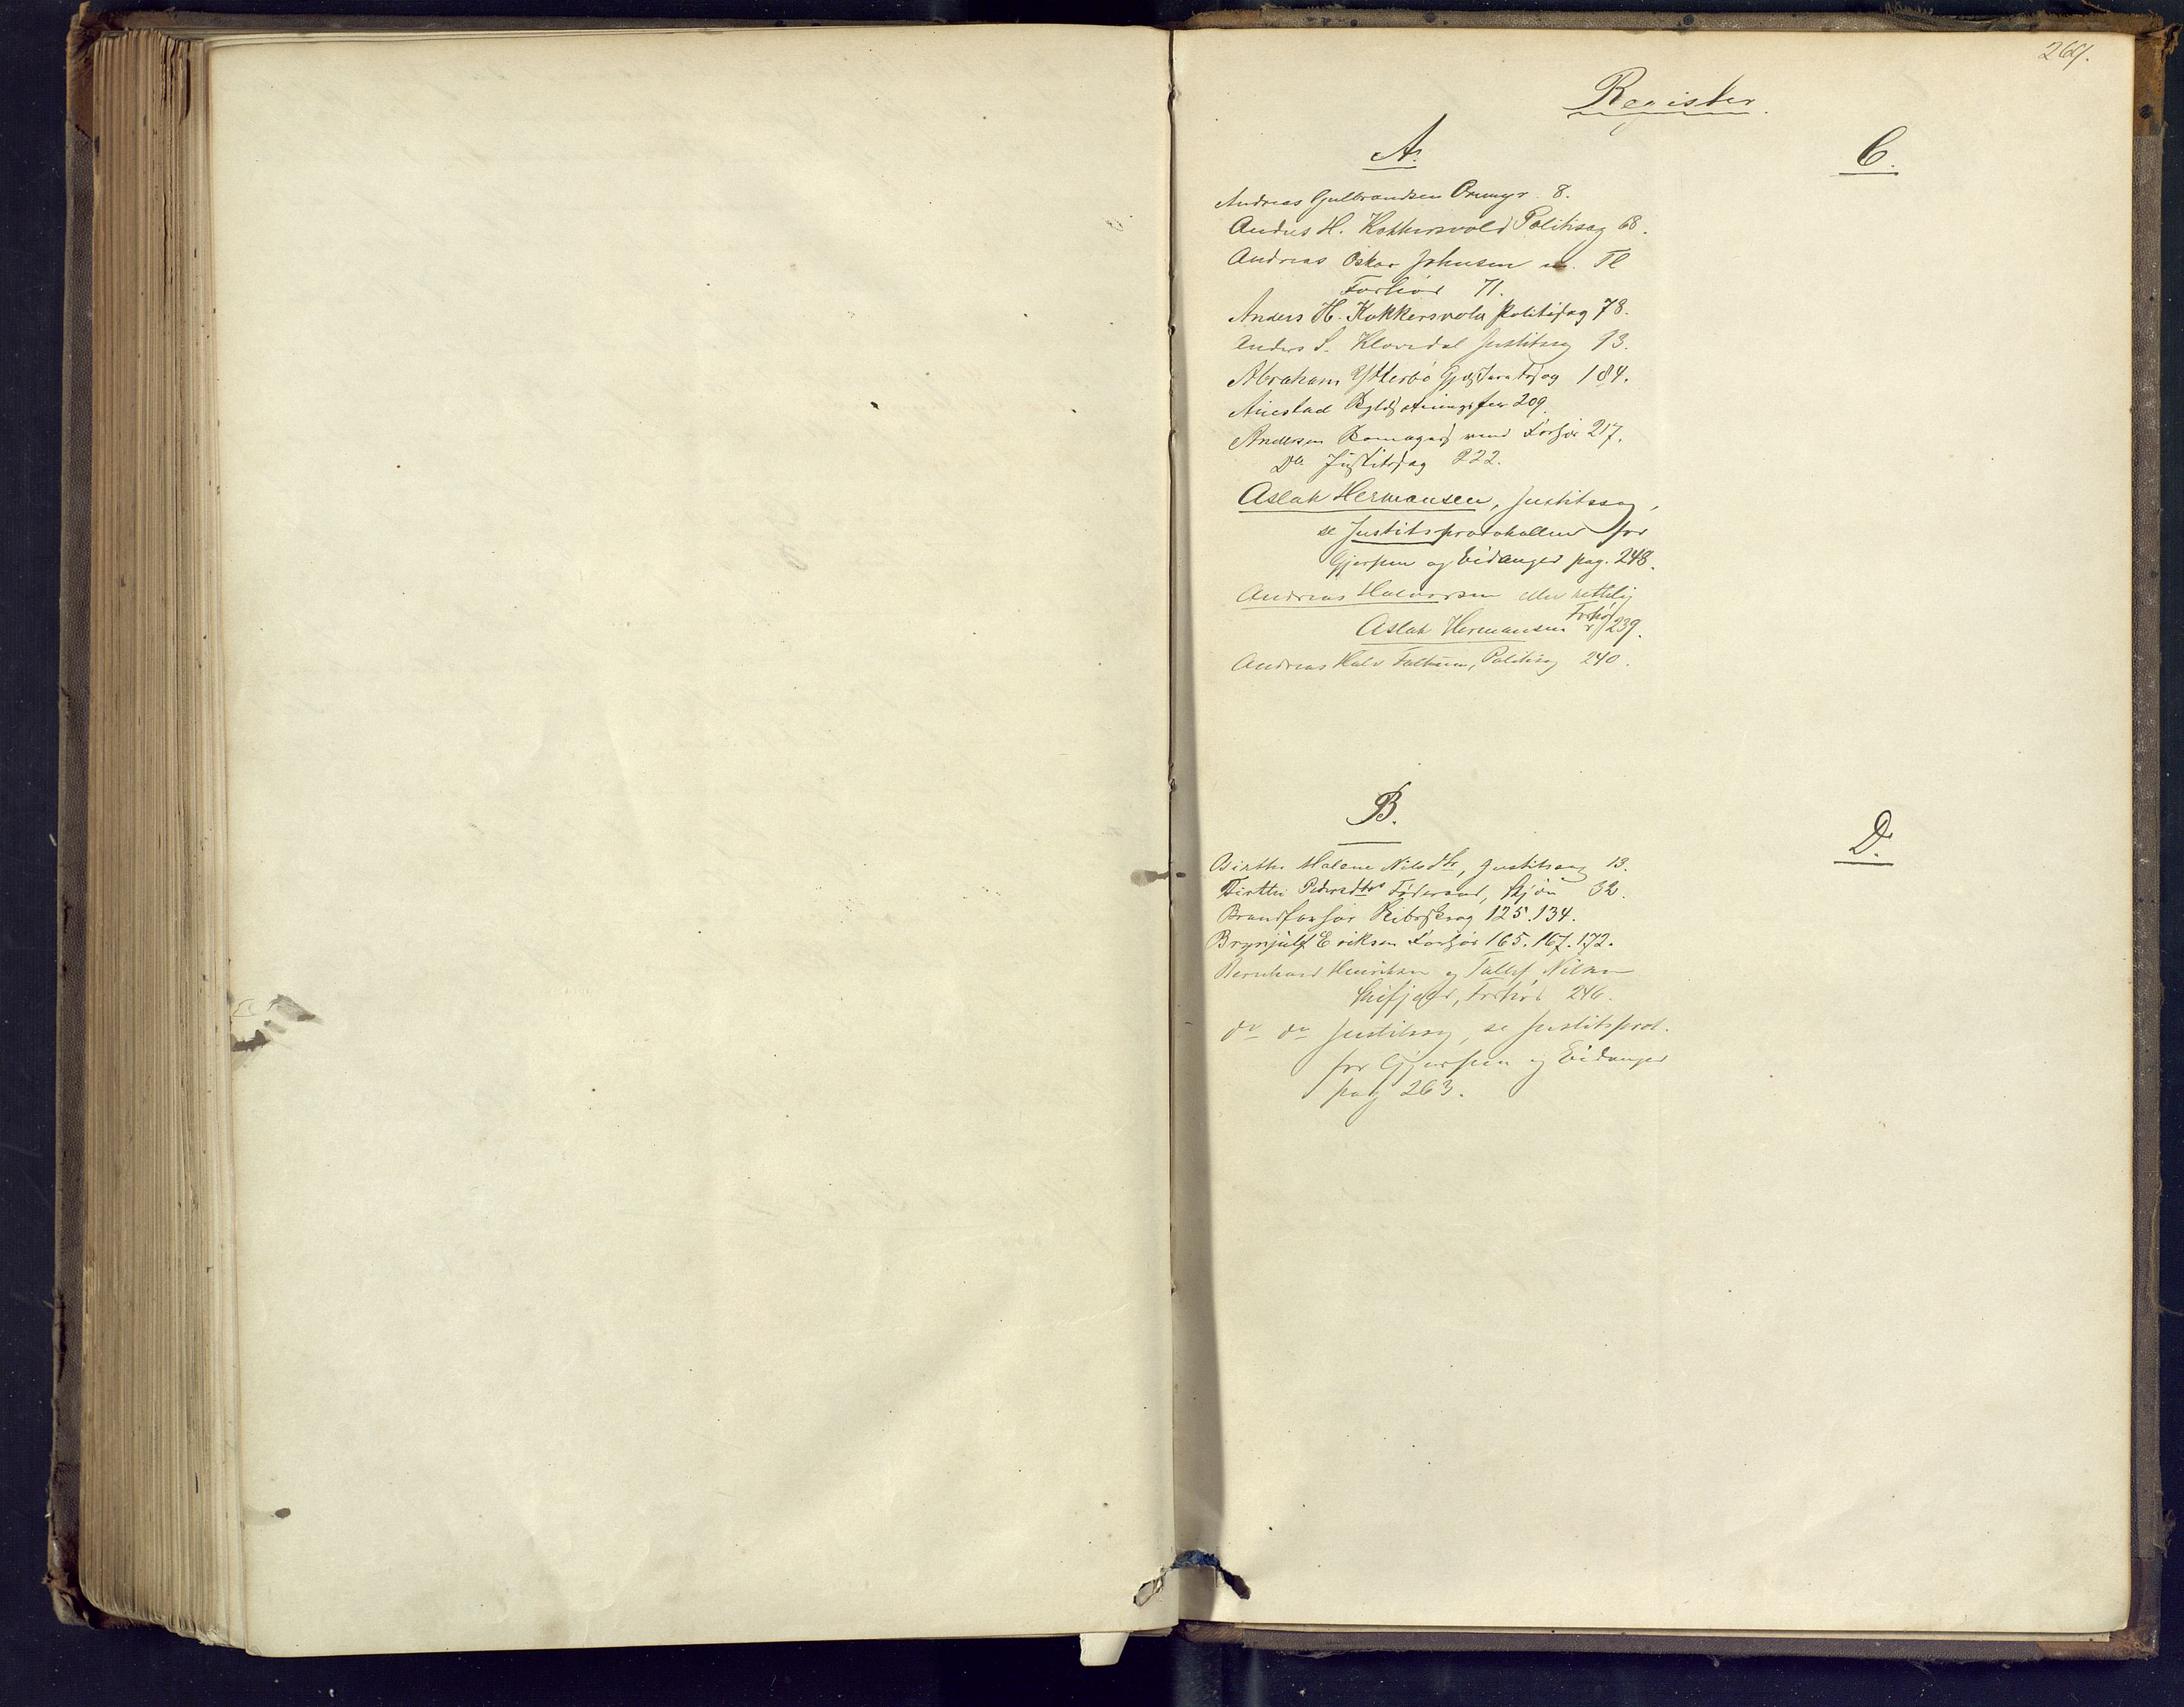 269.
Register.
A.
Andreas Gulbrandsen Ormyr 8.
Anders H. Kokkersvold Politisag 68.
Andreas Oskar Johnsen m. Fl
Forhør 71.
Anders H. Kokkersvold Politisag 78.
Anders S. Klovedal Justitssag 93.
Abraham Ytterbø Gjæstaretssag 184.
Auestad 209.
Andersen Forhør 217.
Do Justitssag 222.
Aslak Hermansen, Justitssag,
se Justitsprotokollen for
Gjerpen og Eidanger pag. 248.
Andreas Halvorsen eller rettelig
Aslak Hermansen Forhør 239.
Andreas Halv Faltum, Politisag 240.
B.
Birthe Malene Nilsdtr, Justitssag 13.
Birthe Pedersdtrs Føderaad, Skjøn 32.
Brandforhør 125.134.
Brynjulf Eriksen Forhør 165.167.172.
Bernhard Henriksen og Tollef Nilsen
Forhør 246.
do do Justitssag, se Justitsprot.
for Gjerpen og Eidanger
pag 263.
C.
D.